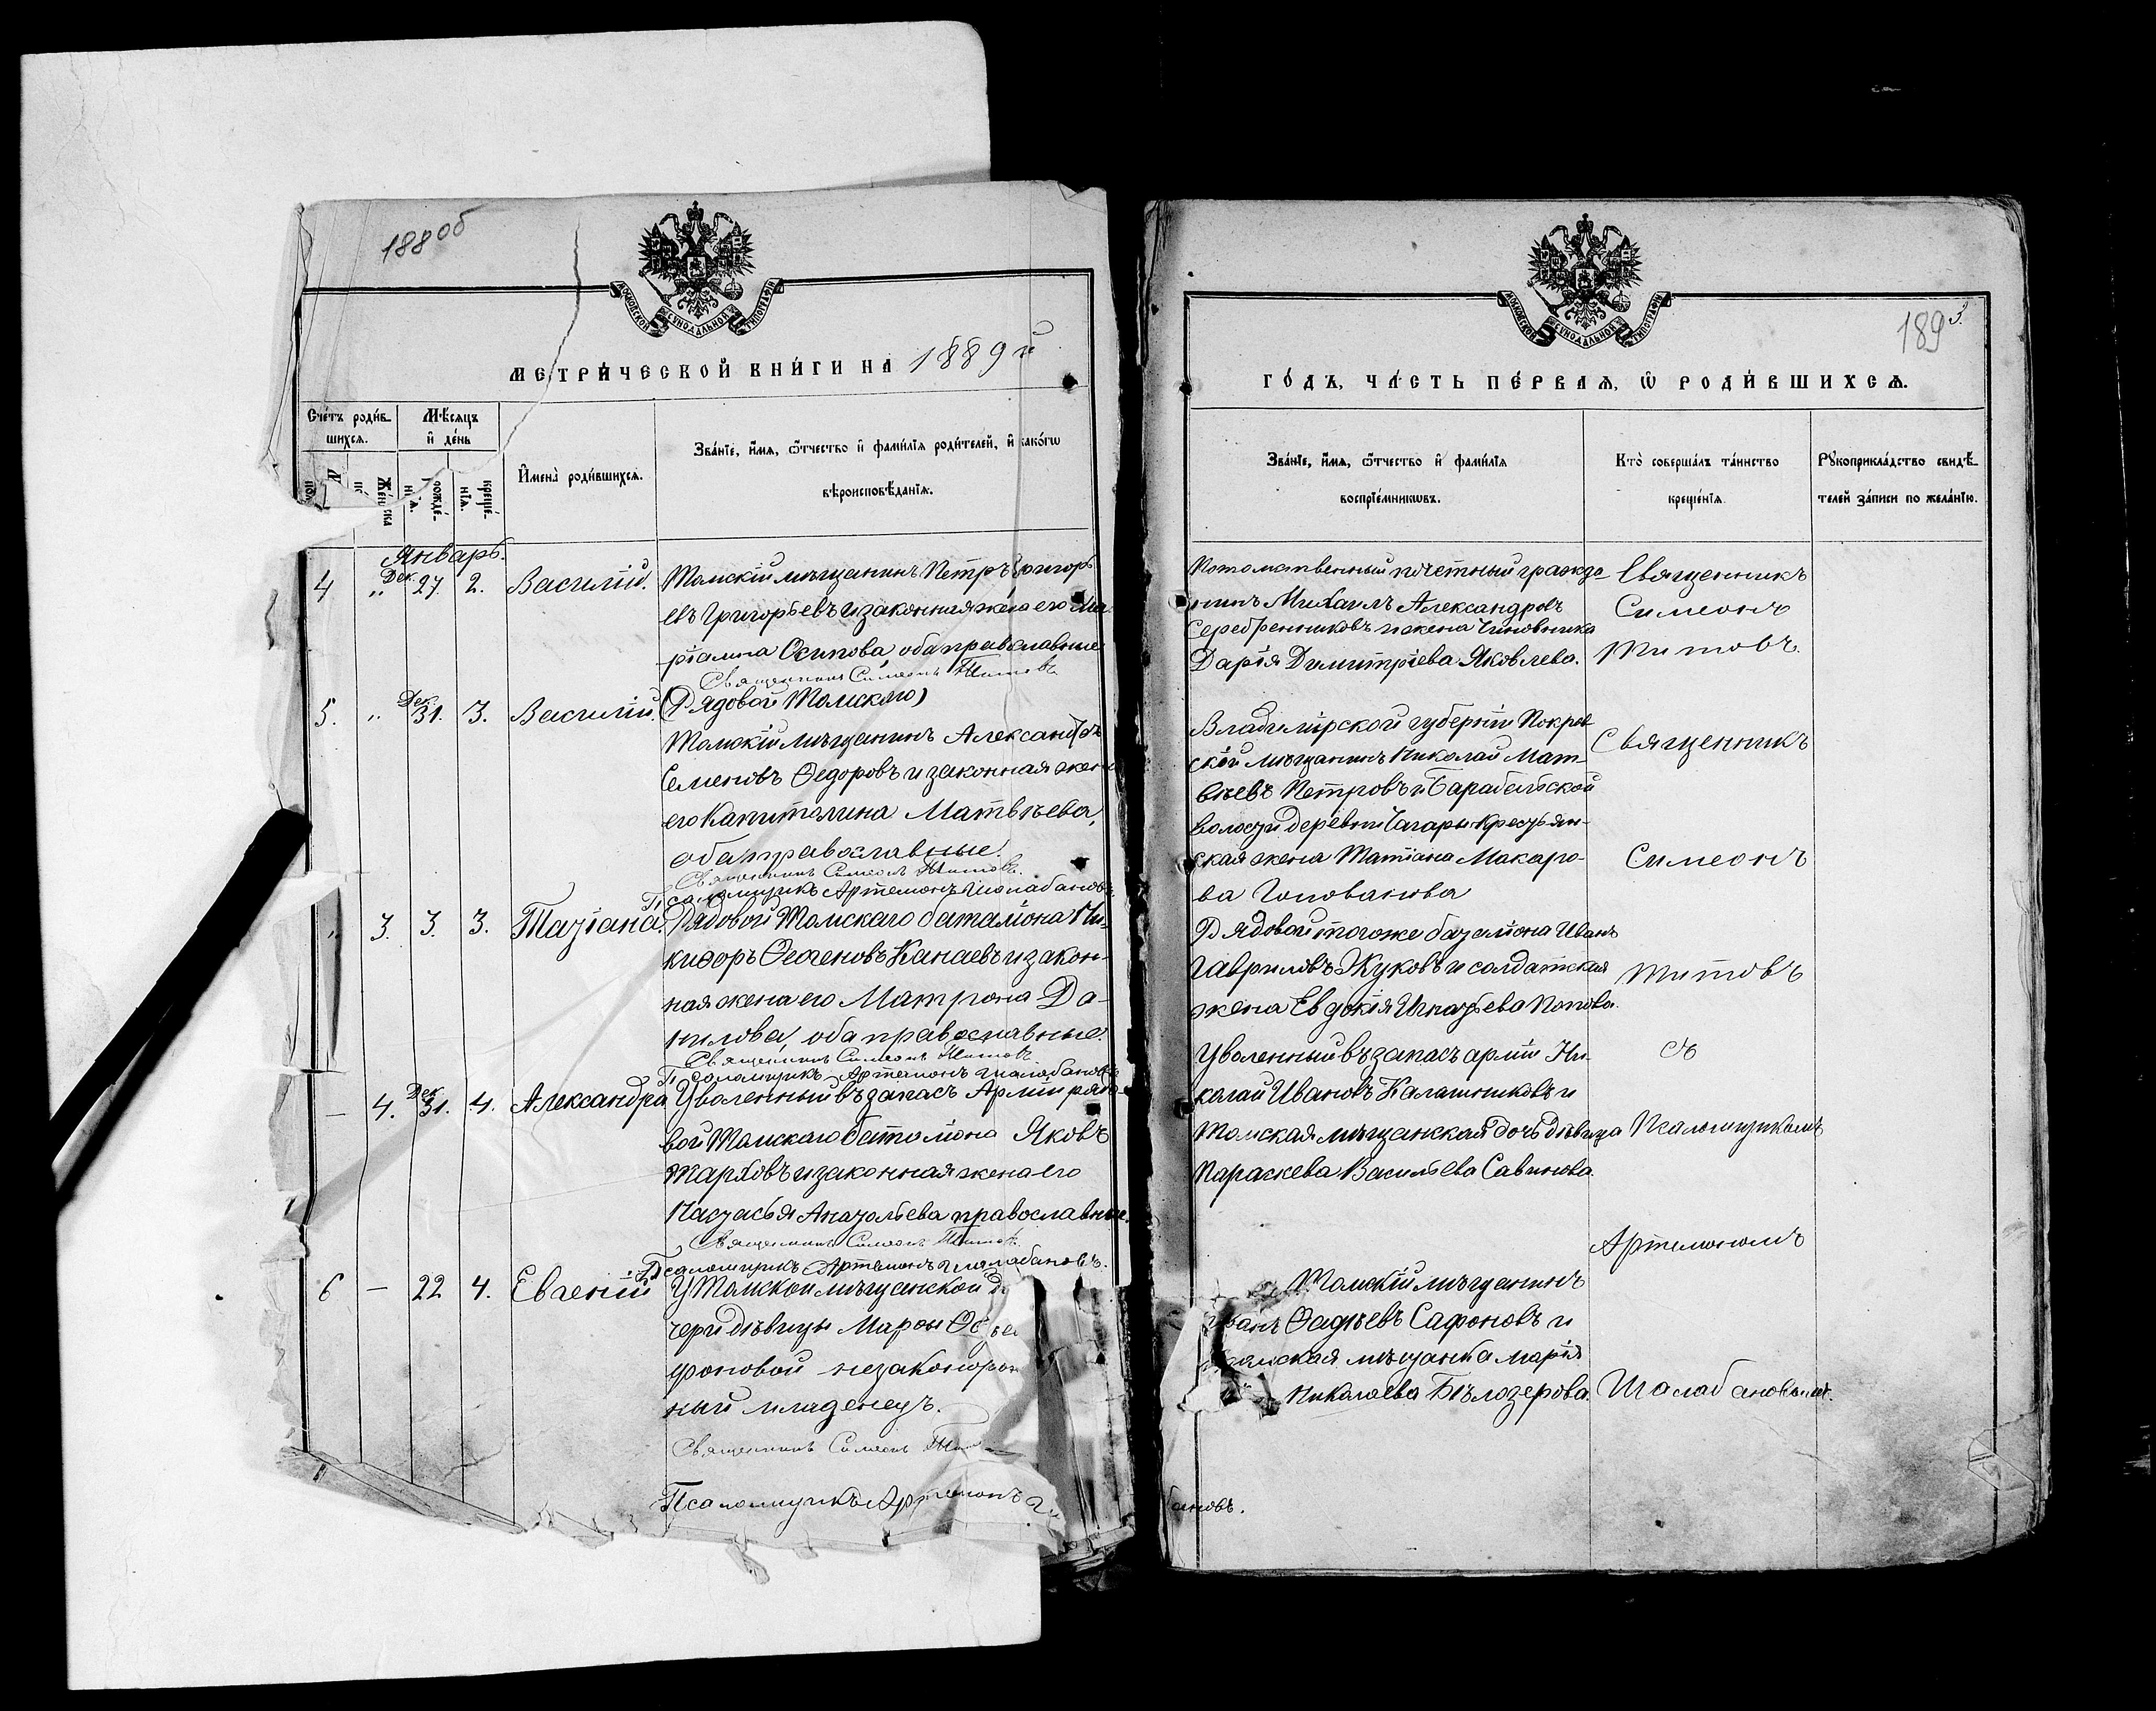 188об
МОСКОВСКОЙ СѴНОДАЛЬНОЙ ТИПОГРАФІИ
МЕТРИЧЕСКОЙ КНИГИ НА 1889й
Счетъ родившихся.
Мѣсяцъ и день
Имена родившихся.
Званіе, имя, отчество и фамилія родителей, и какого
вѣроисповѣданія.
рожденія.
крещенія.
Январь.
4 " Дек. 27 2. Василій. Томскій мѣщанинъ Петръ Григорь
евъ Григорьевъ и законная жена его Ма
ріамна Осипова, оба православные
Священникъ Симеонъ Титовъ
5. " Дек. 31. 3. Василій. (Рядовой Томскаго)
Томскій мѣщанинъ Александръ
Семеновъ Ѳедоровъ и законная жена
его Капитолина Матвѣева,
оба православные.
Священникъ Симеонъ Титовъ.
Псаломщикъ Артемонъ Шалабановъ
" 3. 3. 3. Татіана. Рядовой Томскаго баталіона Ни-
кифоръ Канаевъ и закон-
ная жена его Матрона Да-
нилова, оба православные.
Священникъ Симеонъ Титовъ
Псаломщикъ Артемонъ Шалабановъ
— 4. Дек. 31. 4. Александра Уволенный въ запасъ Арміи рядо-
вой Томскаго баталіона Яковъ
Тарховъ и законная жена его
Настасья Анатольева православные.
Священникъ Симеонъ Титовъ
Псаломщикъ Артемонъ Шалабановъ.
6 — 22 4. Евгеній У Томской мѣщанской д
чери дѣвицы Марѳы
фоновой незаконорож
ный младенецъ.
Священникъ Симеонъ Тит
Псаломщикъ Артемонъ Ш
189 3.
МОСКОВСКОЙ СѴНОДАЛЬНОЙ ТИПОГРАФІИ
ГОДЪ, ЧАСТЬ ПЕРВАЯ, Ѡ РОДИВШИХСЯ.
Званіе, имя, отчество и фамилія
воспріемниковъ.
Кто совершалъ таинство
крещенія
Рукоприкладство свидѣ-
телей записи по желанію.
Потомственный почетный гражда-
нинъ Михаилъ Александровъ
Серебренниковъ и жена чиновника
Дарія Димитріева Яковлева.
Владимірской губерніи Покров
скій мѣщанинъ Николай Мат-
вѣевъ Петровъ и Барабельской
волости деревни Чагары крестьян-
ская жена Татіана Макаро-
ва Голованова
Рядовой того же баталіона Иванъ
Гавриловъ Жуковъ и солдатская
жена Евдокія Игнатьева Попова.
Уволенный въ запасъ арміи Ни-
колай Ивановъ Калашниковъ и
Томская мѣщанская дочь дѣвица
Параскева Васильева Савинова.
Томскій мѣщанинъ
Иванъ Ѳадѣевъ Сафоновъ и
Томская мѣщанка Марія
Николаева Бѣлозерова.
Священникъ
Симеонъ
Титовъ.
Священникъ
Симеонъ
Титовъ
съ
Псаломщикомъ
Артемономъ
Шалабановымъ.
бановъ.